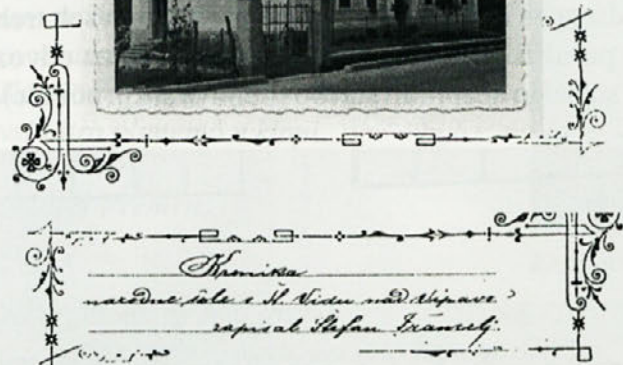 Kronika
narodne šole v Št. Vidu nad Vipavo
zapisal Štefan Francelj.